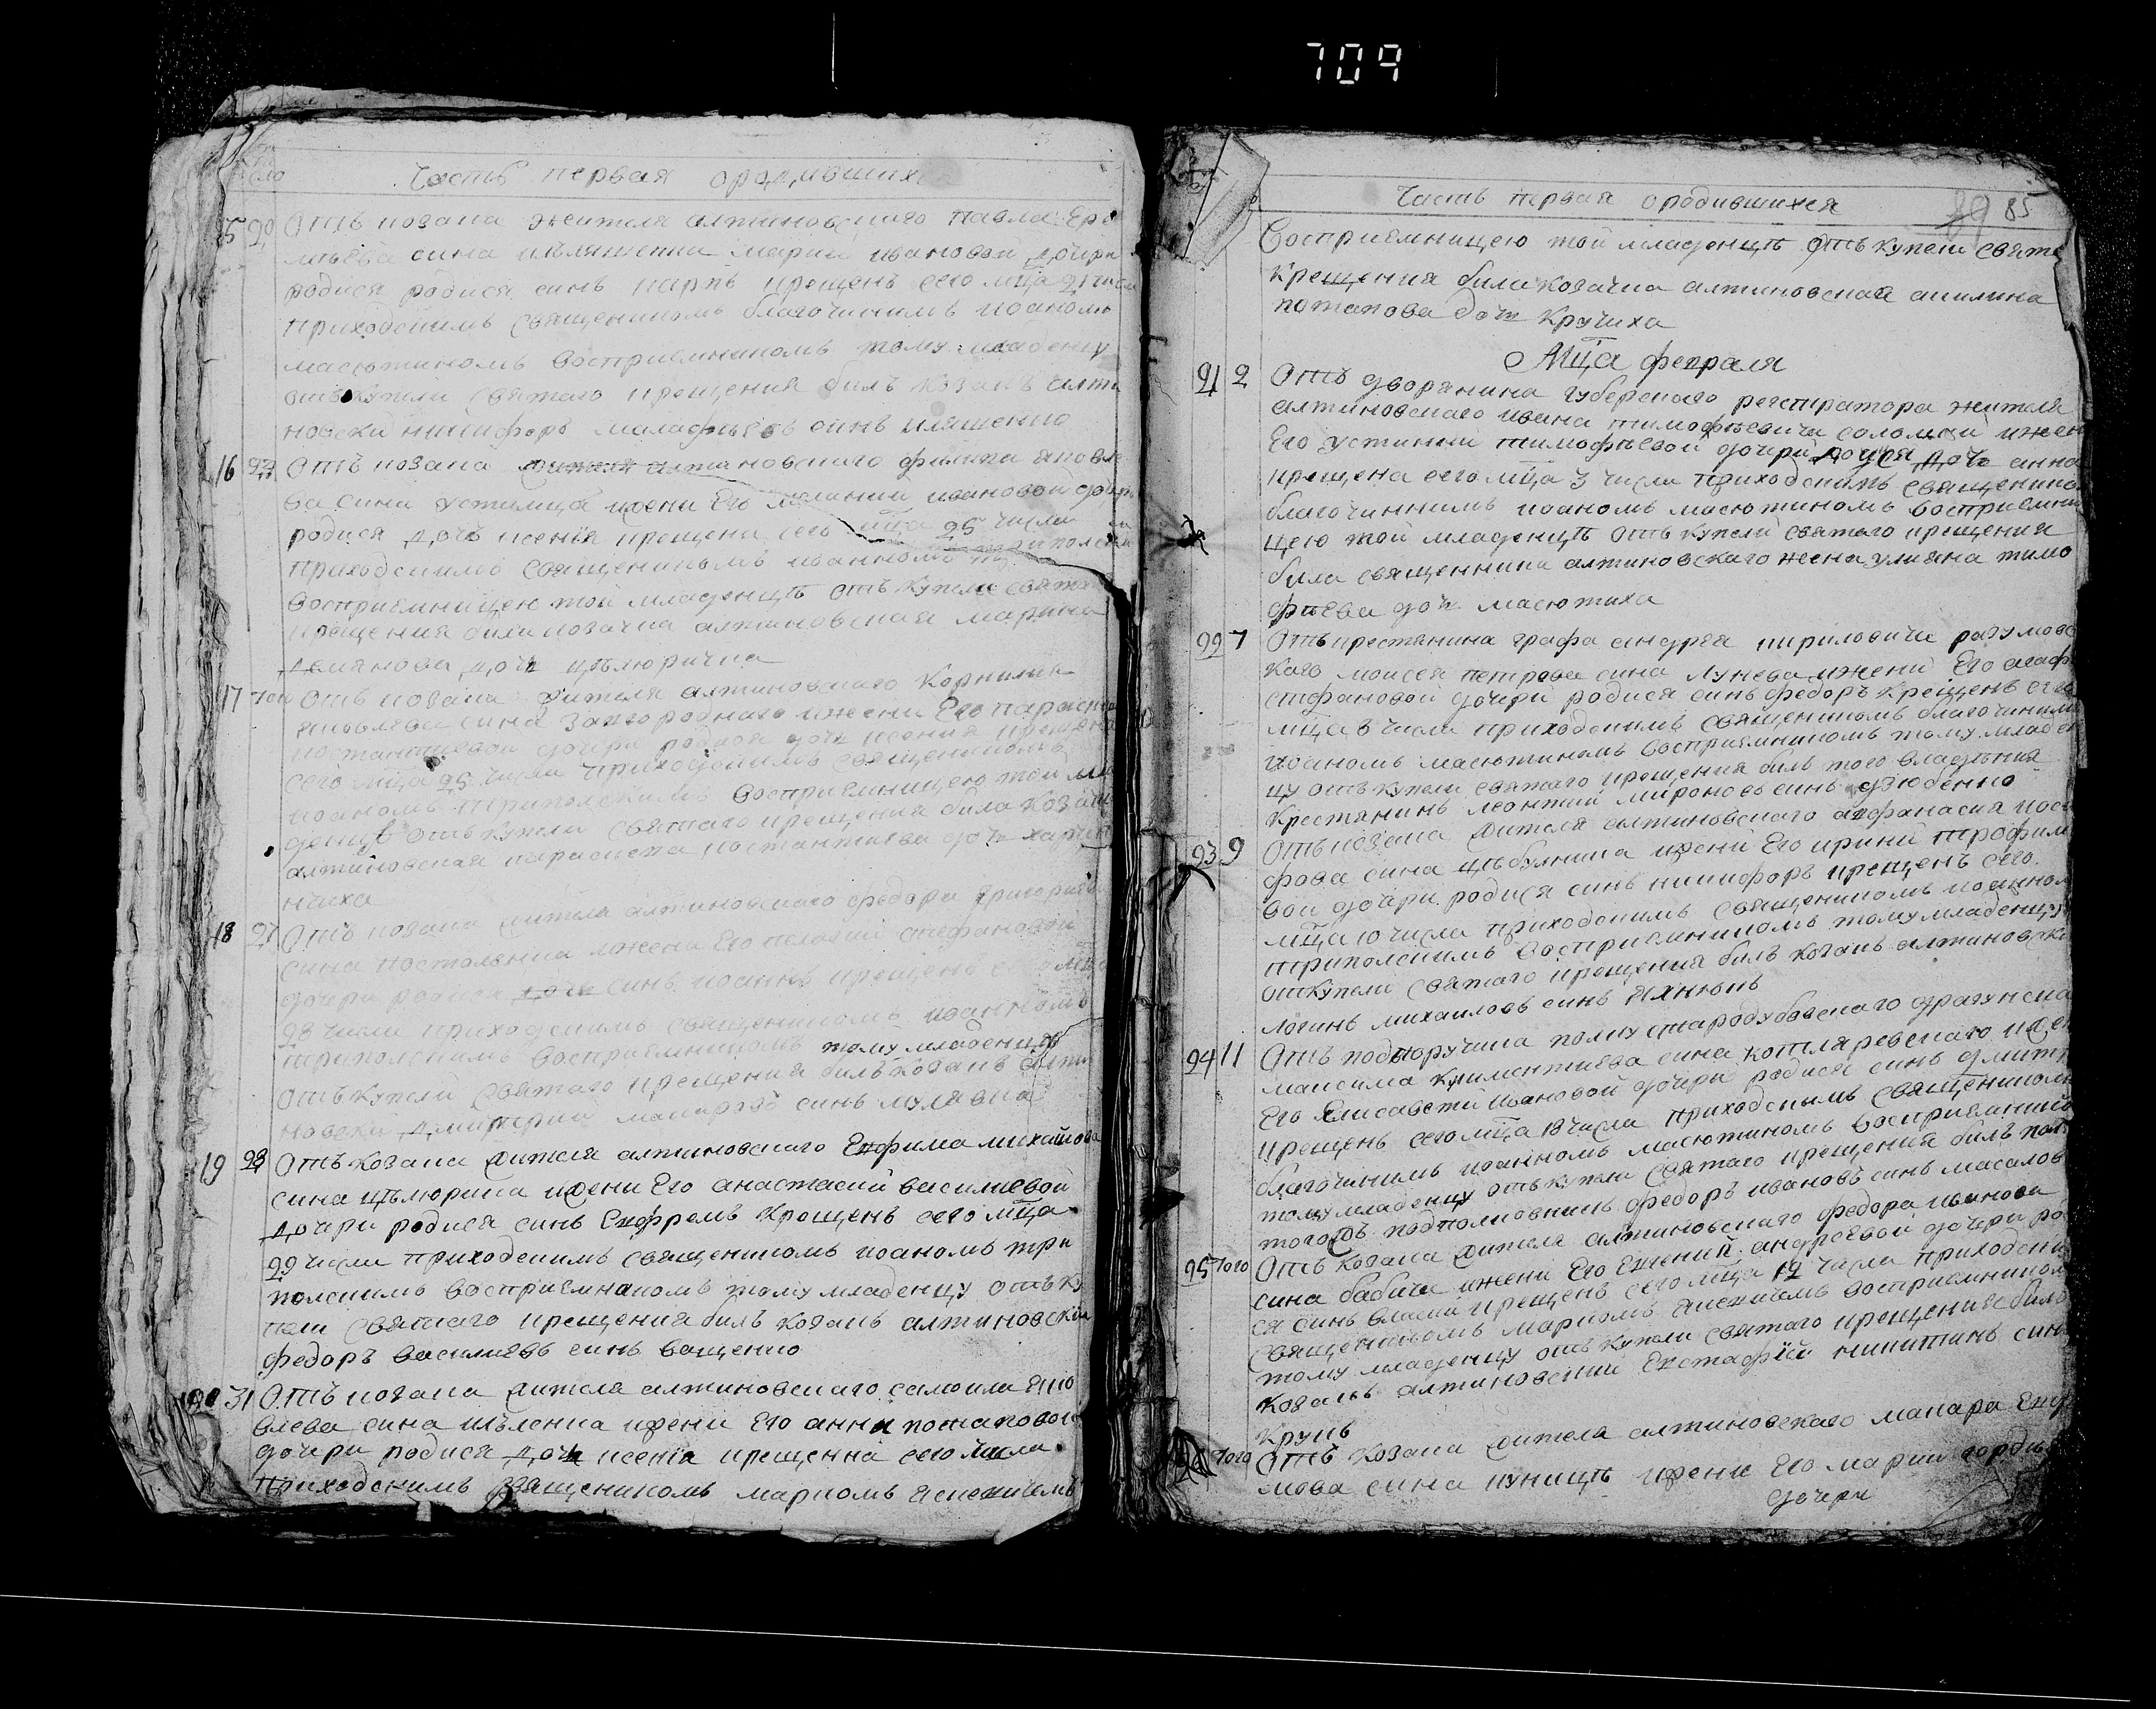 709
Часть первая ородившихся
15 20 Отъ козака жителя алтиновского павла Ере
мѣева сина илляшенка марии ивановой дочери
родися родися синъ карпъ крещенъ сего мца 21 числа
приходскимъ священикомъ благочинимъ иоаномъ
масютиномъ восприемникомъ тому младенцу
отъ купели святаго крещения билъ козакъ алти
новски никифоръ малафѣевъ синъ иляшенко
16 22 Отъ козака жителя алтиновского филипа яковле
ва сина устимца жени Его меланий ивановой дочери
родися дочъ ксенія крещена сего мца 25 числа
приходскимъ священикомъ иоанномъ триполским
восприемницею той младенцѣ отъ купели свята
крещения била козачка алтиновская марина
демянова дочъ цѣлюричка
17 того Отъ козака жителя алтиновского Корнилия
яковлева сина Загороднаго ижени Его параски
костантиевой дочери родися дочъ ксения крещена
сего мца 25 числа приходскимъ священикомъ
иоаномъ триполскимъ восприемницею той мла
денцѣ отъ купели святаго крещения била козачк
алтиновская параскева костантиева дочъ харче
нчиха
18 27 Отъ козака жителя алтиновского федора григориева
сина постолника ижени Его пелагий стефановой
дочери родися дочъ синъ иоаннъ крещенъ сего мца
28 числа приходскимъ священикомъ иоанномъ
триполскимъ восприемникомъ тому младенцу
отъ купели святаго крещения билъ козакъ алти
новски димитрий макаровъ синъ мулявка
19 28 Отъ козака жителя алтиновского Евфима михайлова
сина цѣлюрика жени Его анастасий василиевой
дочери родися синъ Ефремъ крещенъ сего мца
29 числа приходскимъ священикомъ иоаномъ три
полскимъ восприемникомъ тому младенцу отъ ку
пели святаго крещения билъ козакъ алтиновски
федоръ василиевъ синъ ващенко
20 31 Отъ козака жителя алтиновского самоила яко
влева сина жени Его анни потаповой
дочери родися дочъ ксенія крещенна сего числа
приходскимъ священикомъ маркомъ
Часть первая ородившихся
85
Восприемницею той младенцѣ отъ купели свята
крещения била козачка алтиновская акилина
потапова дочъ Кручиха
Мца февраля
21 2 Отъ дворянина губерского регистратора жителя
алтиновского ивана тимофѣевича соломки ижен
Его устинии тимофѣевой дочери дочъ анна
крещена сего мца 3 числа приходскимъ священико
благочиннимъ иоаномъ масютиномъ восприемни
цею той младенцѣ отъ купели святаго крещения
била священника алтиновскаго жена улияна тимо
фѣева дочъ масютиха
22 7 Отъ крестянина графа андрея кириловича разумовс
каго моисея петрова сина ижени Его агаф
стефановой дочери родися синъ федоръ крещенъ сего
мца 8 числа приходскимъ священикомъ благочиним
иоаномъ масютиномъ восприемникомъ тому младен
цу отъ купели святаго крещения билъ того владѣния
крестянинъ леонтий мироновъ синъ дзюбенко
23 9 Отъ козака жителя алтиновского афанасия
фова сина цѣбулника жени Его ирини трофимо
вой дочери родися синъ никифоръ крещенъ сего
мца 10 числа приходскимъ священикомъ иоанном
триполскимъ восприемникомъ тому младенцу
откупели святаго крещения билъ козакъ алтиновски
логинъ михаиловъ синъ
24 11 Отъ подпоручика полку стародубовского драгунска
максима климентиева сина котляревского ижен
Его Елисавети ивановой дочери родися синъ дмитр
крещенъ сего мца 18 числа приходскимъ священикомъ
благочинимъ иоанномъ масютиномъ восприемником
тому младенцу отъ купели святаго крещения билъ
подполковникъ федоръ ивановъ синъ масалов
25 того Отъ козака жителя алтиновского федора иванова
сина бабича ижени Его Евгений андреевой дочери ро
ся синъ власий крещенъ сего мца 12 числа приходски
священикомъ маркомъ восприемником
тому младенцу отъ купели святаго крещения билъ
козакъ алтиновский Евстафий никитинъ син
крупъ
26 того Отъ козака жителя алтиновскаго макара
мова сина куницѣ жени Его марии
дочери